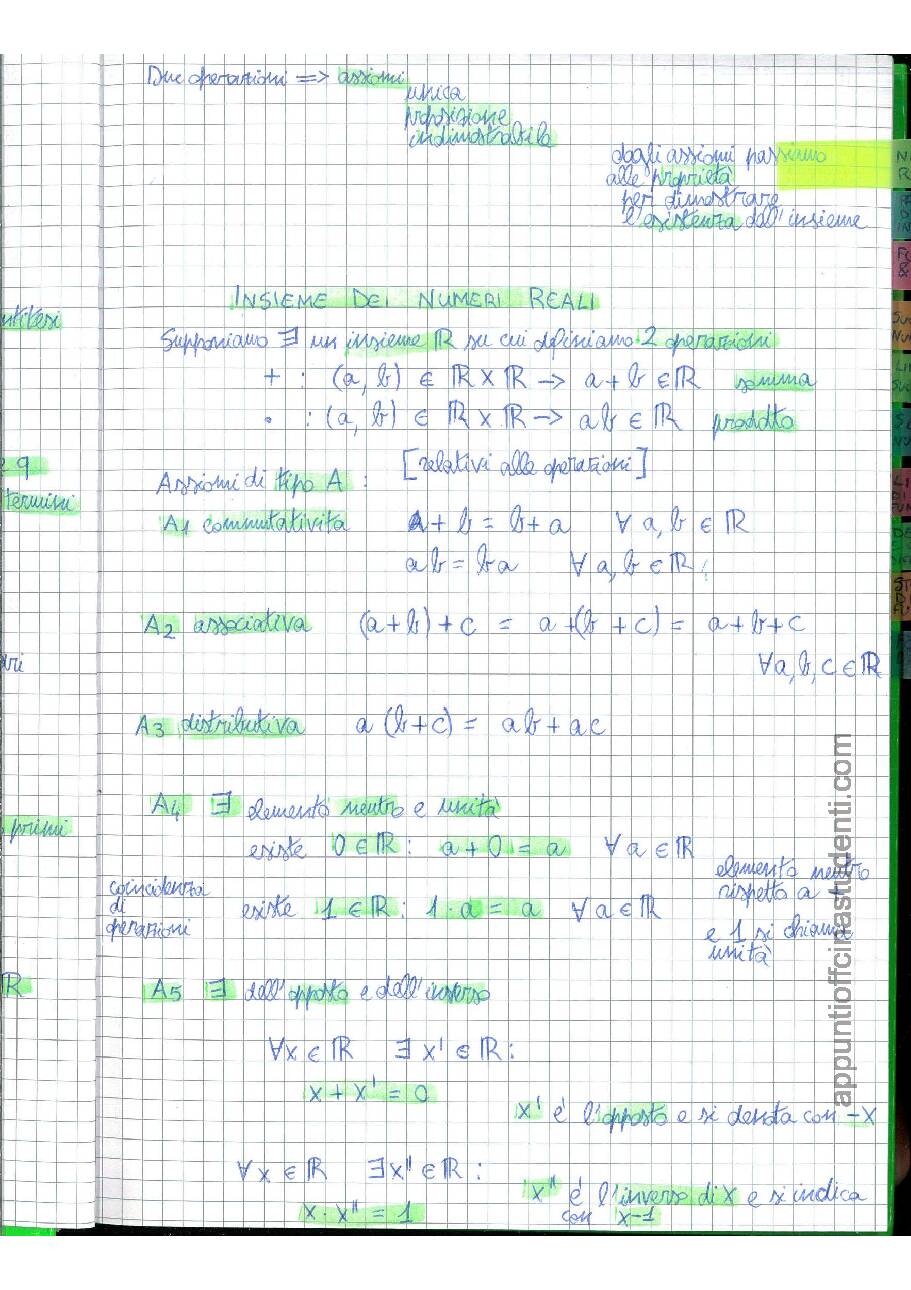 Due operazioni => assiomi
unica
proposizione
indimostrabile
dagli assiomi passiamo
alle proprietà
per dimostrare
l'esistenza dell'insieme
INSIEME DEI NUMERI REALI
Supponiamo ∃ un insieme ℝ su cui definiamo 2 operazioni
+ : (a, b) ∈ ℝ × ℝ → a + b ∈ ℝ somma
• : (a, b) ∈ ℝ × ℝ → ab ∈ ℝ prodotto
Assiomi di tipo A : [relativi alle operazioni]
A1 commutatività a + b = b + a ∀ a, b ∈ ℝ
ab = ba ∀ a, b ∈ ℝ
A2 associativa (a+b) + c = a +(b + c) = a + b + c
∀ a, b, c ∈ ℝ
A3 distributiva a (b+c) = ab + ac
A4 ∃ elemento neutro e unità
esiste 0 ∈ ℝ : a + 0 = a ∀ a ∈ ℝ
elemento neutro
rispetto a +
coincidenza
di
operazioni
esiste 1 ∈ ℝ : 1 · a = a ∀ a ∈ ℝ
e 1 si chiama
unità
A5 ∃ dell'opposto e dell'inverso
∀x ∈ ℝ ∃ x' ∈ ℝ :
x + x' = 0
x' é l'opposto e si denota con -x
∀ x ∈ ℝ ∃ x" ∈ ℝ :
x · x" = 1
x" é l'inverso di x e si indica
con x-1
termini
primi
ℝ
appuntiofficinastudenti.com